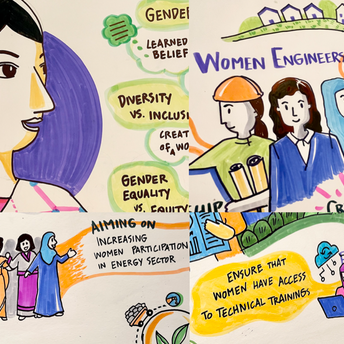 GENDER
LEARNED
BELIEF
DIVERSITY
VS. INCLUSI
CREAT
OF A WO
GENDER
EQUALITY
VS. EQUITY
WOMEN ENGINEERS
UP
CR
AIMING ON
INCREASING
WOMEN PARTICIPATION
IN ENERGY SECTOR
ENSURE THAT
WOMEN HAVE ACCESS
TO TECHNICAL TRAININGS